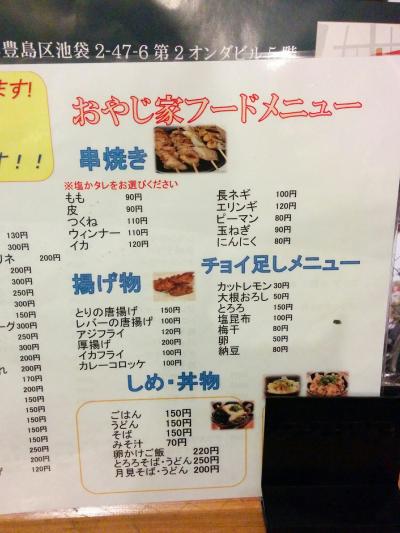 豊島区池袋2-47-6 第2オンダビル5階
ます!
す!!
おやじ家フードメニュー
串焼き
※塩かタレをお選びください
もも 90円
皮 90円
つくね 110円
ウィンナー 110円
イカ 120円
長ネギ 100円
エリンギ 120円
ピーマン 80円
玉ねぎ 90円
にんにく 80円
揚げ物
とりの唐揚げ 150円
レバーの唐揚げ 100円
アジフライ 120円
厚揚げ 200円
イカフライ 100円
カレーコロッケ 100円
チョイ足しメニュー
カットレモン 30円
大根おろし 50円
とろろ 150円
塩昆布 100円
梅干 80円
卵 50円
納豆 80円
しめ・丼物
ごはん 150円
うどん 150円
そば 150円
みそ汁 70円
卵かけご飯 220円
とろろそば・うどん 250円
月見そば・うどん 200円
130円
300円
リネ 200円
200円
200円
300円
ーグ 300円
200円
200円
200円
れ 200円
170円
200円
150円
150円
200円
150円
150円
200円
げ 120円